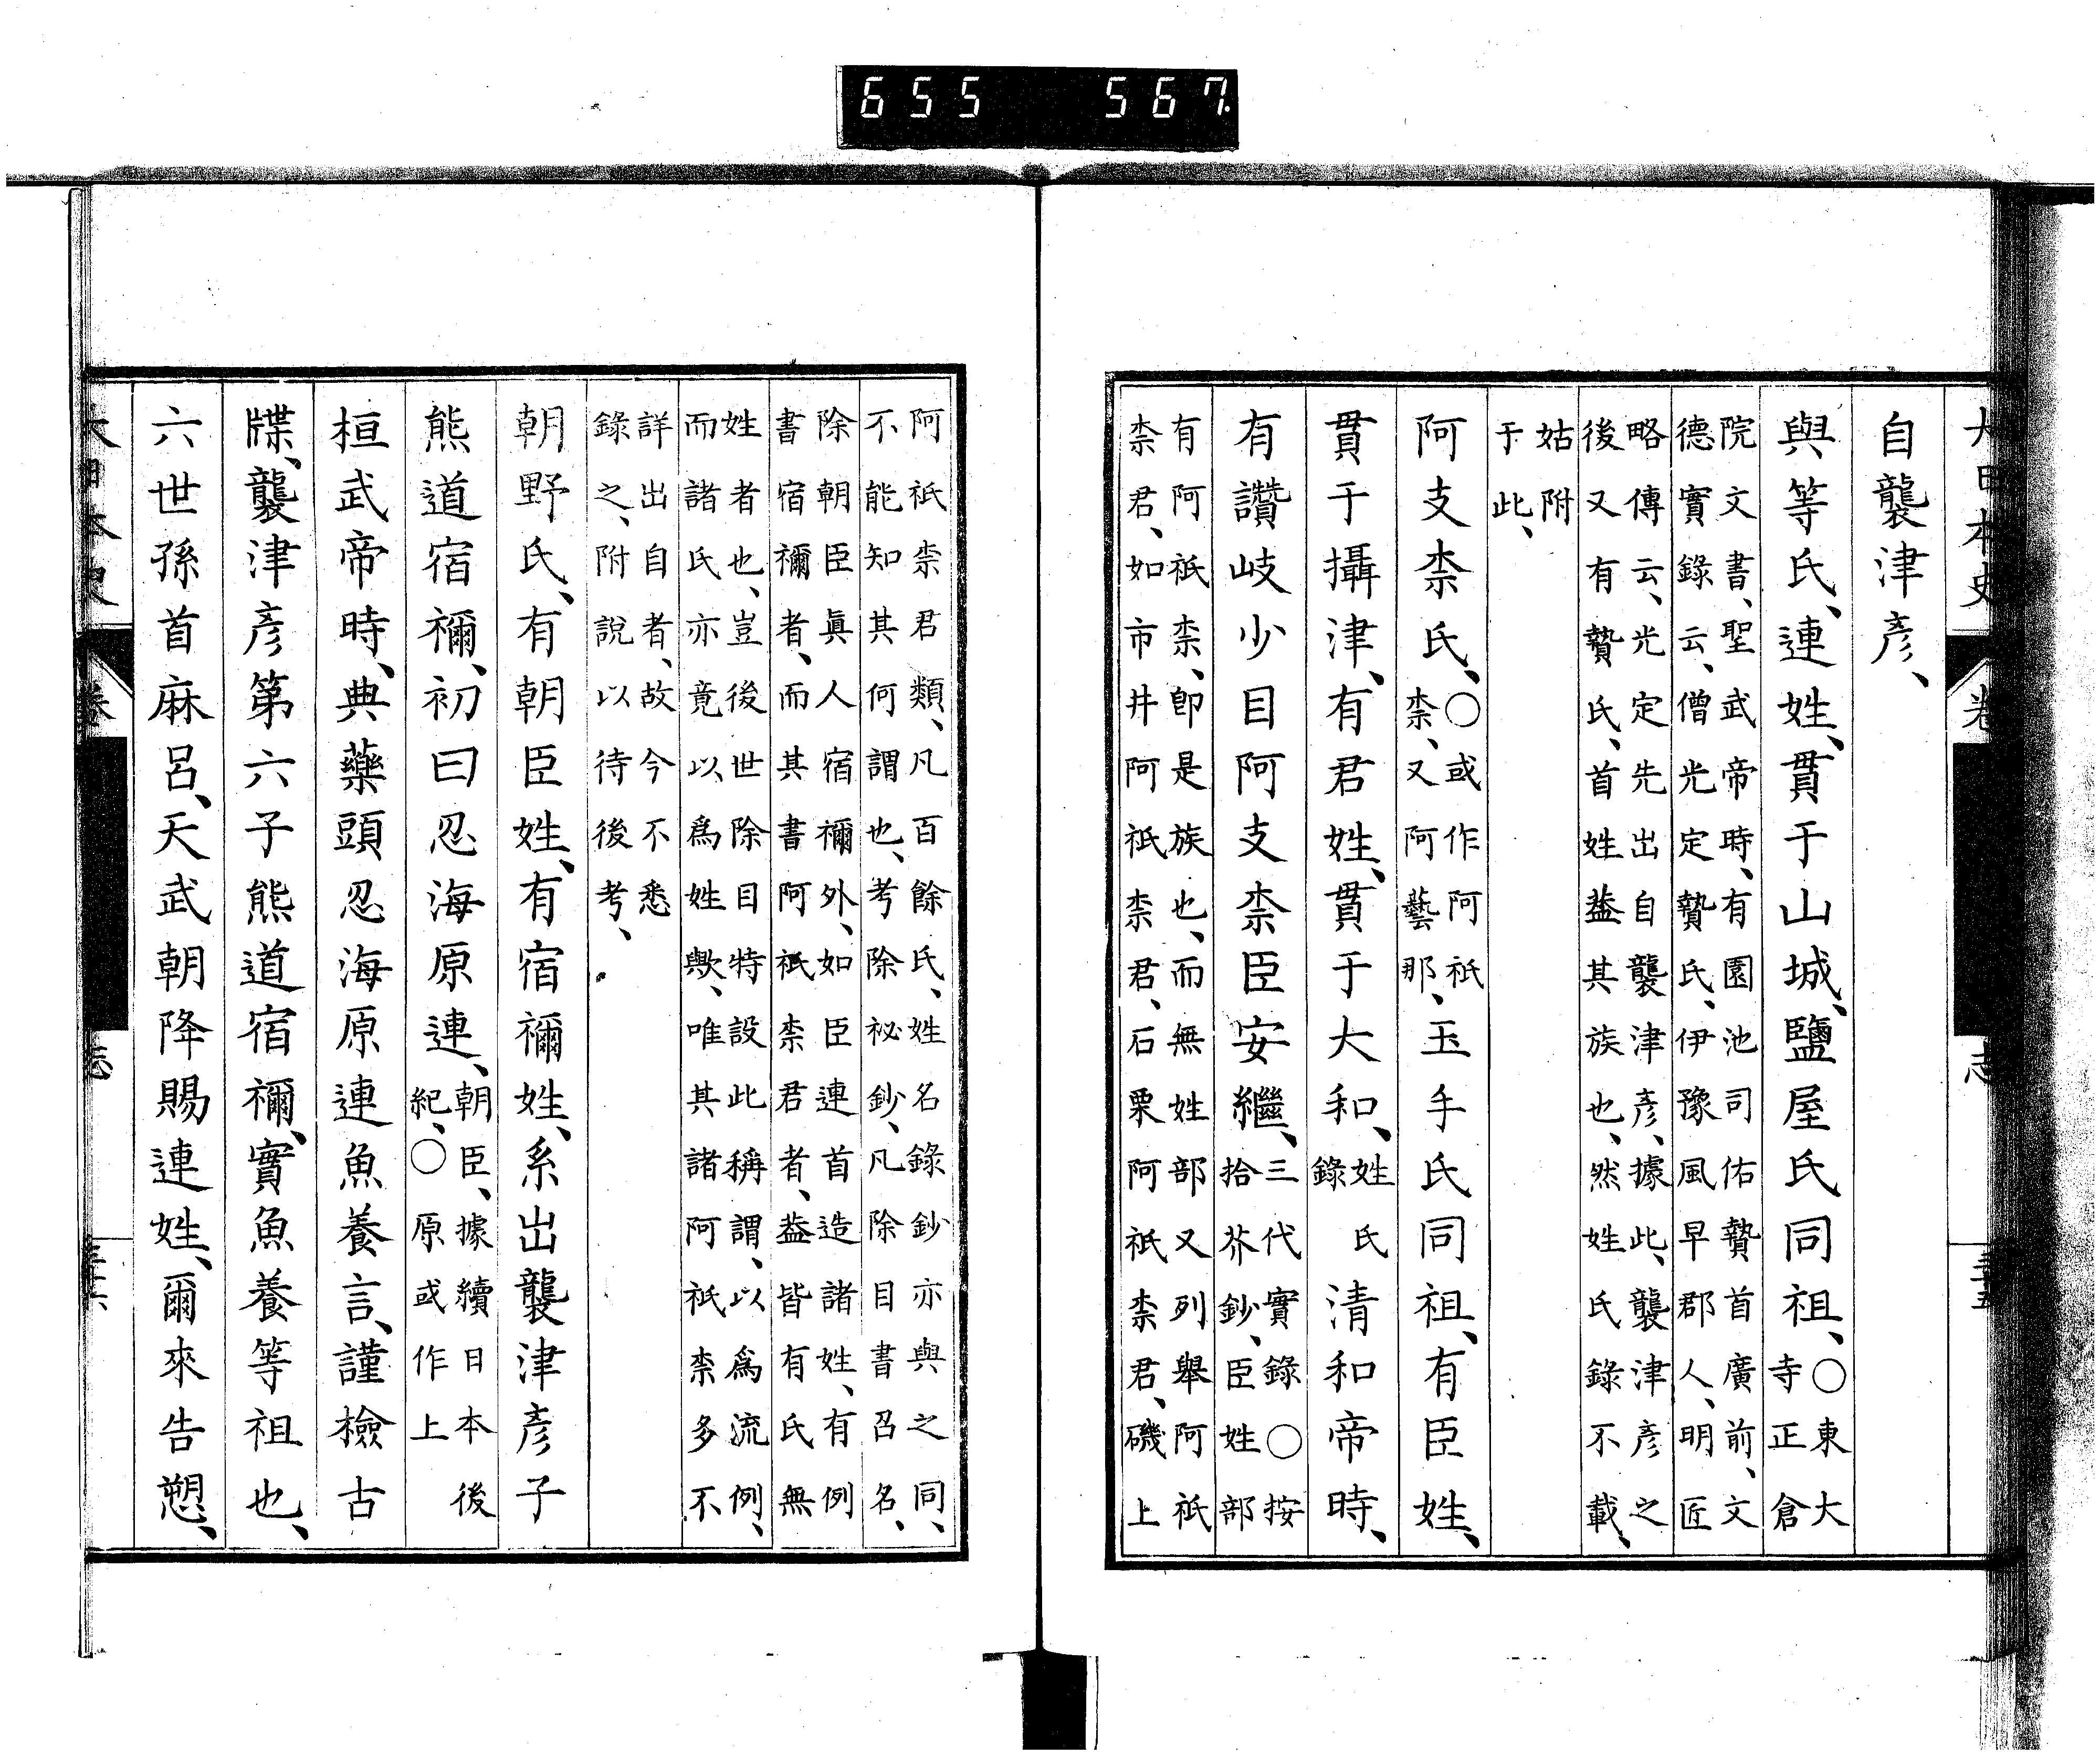 大日本史 卷 志 三十五
自襲津彥、
與等氏、連姓、貫于山城、鹽屋氏同祖、○東大
寺正倉
院文書、聖武帝時、有園池司佑贄首廣前、文
德實錄云、僧光定贄氏、伊豫風早郡人、明匠
略傳云、光定先出自襲津彥、據此、襲津彥之
後又有贄氏、首姓葢其族也、然姓氏錄不載、
姑附
于此、
阿支柰氏、○或作阿祇
柰、又阿藝那、玉手氏同祖、有臣姓、
貫于攝津、有君姓、貫于大和、姓氏
錄清和帝時、
有讚岐少目阿支柰臣安繼、三代實錄○按
拾芥鈔、臣姓部
有阿祇柰、卽是族也、而無姓部又列舉阿祇
柰君、如市井阿祇柰君、石栗阿祇柰君、磯上
阿祇柰君類、凡百餘氏、姓名錄鈔亦與之同、
不能知其何謂也、考除祕鈔、凡除目書召名、
除朝臣眞人宿禰外、如臣連首造諸姓、有例
書宿禰者、而其書阿祇柰君者、葢皆有氏無
姓者也、豈後世除目特設此稱謂、以爲流例、
而諸氏亦竟以爲姓歟、唯其諸阿祇柰多不
詳出自者、故今不悉
錄之、附說以待後考、
朝野氏、有朝臣姓、有宿禰姓、系出襲津彥子
熊道宿禰、初曰忍海原連、朝臣、據續日本後
紀、○原或作上
桓武帝時、典藥頭忍海原連魚養言、謹檢古
牒、襲津彥第六子熊道宿禰、實魚養等祖也、
六世孫首麻呂、天武朝降賜連姓、爾來告愬、
大日本史 卷 志 三十六
655 567